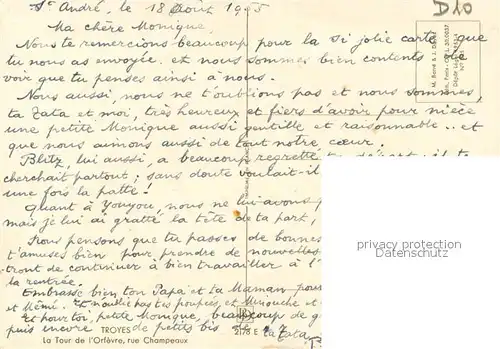 St André, le 18 Août 1965
D10
Ma chère Monique,
Nous te remercions beaucoup pour la si jolie carte que
tu nous as envoyée et nous sommes bien contents de
voir que tu penses ainsi à nous.
Nous aussi, nous ne t'oublions pas et nous sommes,
ta Tata et moi, très heureux et fiers d'avoir pour nièce
une petite Monique aussi gentille et raisonnable.. et
que nous aimons aussi de tout notre cœur.
Blitz, lui aussi, a beaucoup regretté
cherchait partout ; sans doute voulait-il
une fois la patte !
Quant à Youyou, nous ne lui avons
mais je lui ai gratté la tête de ta part,
Nous pensons que tu passes de bonnes
t'amuses bien pour prendre de nouvelles
tront de continuer à bien travailler à l'
la rentrée.
Embrasse bien ton Papa et ta Maman pour
et Mémé. Et n'oublie pas tes poupées, et Minouche et
Et pour toi, petite Monique, beaucoup de
puis encore de petits bis
ta Tata
TROYES
2178 E
La Tour de l'Orfèvre, rue Champeaux
privater Copyright
webshopinternational